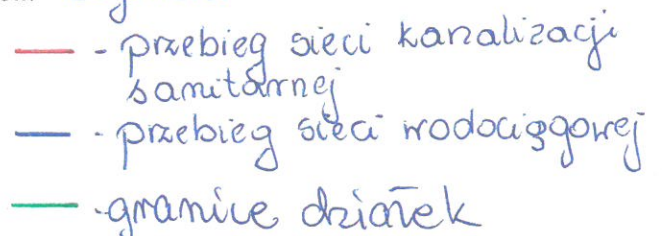 - przebieg sieci kanalizacji
sanitarnej
- przebieg sieci wodociągowej
- granice działek